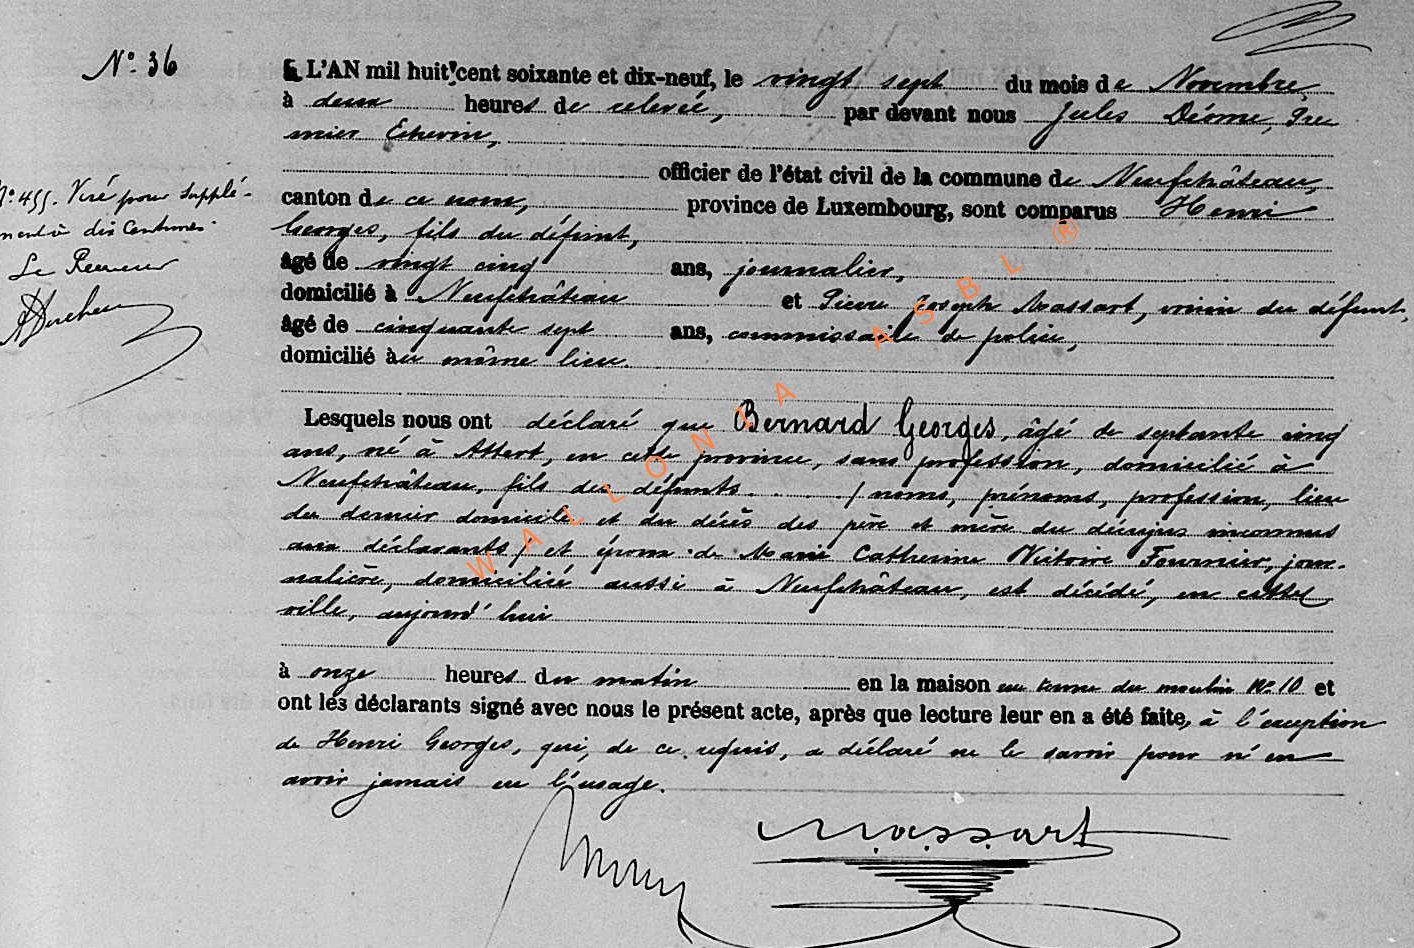 N° 36
L'AN mil huit cent soixante et dix-neuf, le vingt sept du mois de Novembre,
à deux heures de relevée, par devant nous Jules Déome, Pre
mier Echevin,
officier de l'état civil de la commune de Neufchâteau,
canton de ce nom, province de Luxembourg, sont comparus Henri
Georges, fils du défunt,
âgé de vingt cinq ans, journalier,
domicilié à Neufchâteau et Pierre Joseph Massart, voisin du défunt,
âgé de cinquante sept ans, commissaire de police,
domicilié àu même lieu.
N° 455. Visé pour supplé-
ment à dix Centimes.
Le Receveur
Lesquels nous ont déclaré que Bernard Georges, âgé de septante cinq
ans, né à Attert, en cette province, sans profession, domicilié à
Neufchâteau, fils des défunts . . . . / noms, prénoms, profession, lieu
du dernier domicile et du décès des père et mère du décujus inconnus
aux déclarants / et époux de Marie Catherine Victoire Fournier, jour-
nalière, domiciliée aussi à Neufchâteau, est décédé, en cette
ville, aujourd'hui
à onze heures du matin en la maison du moulin N° 10 et
ont les déclarants signé avec nous le présent acte, après que lecture leur en a été faite, à l'exception
de Henri Georges, qui, de ce requis, a déclaré ne le savoir pour n'en
avoir jamais eu l'usage.
Massart
WALLONIA ASBL ®